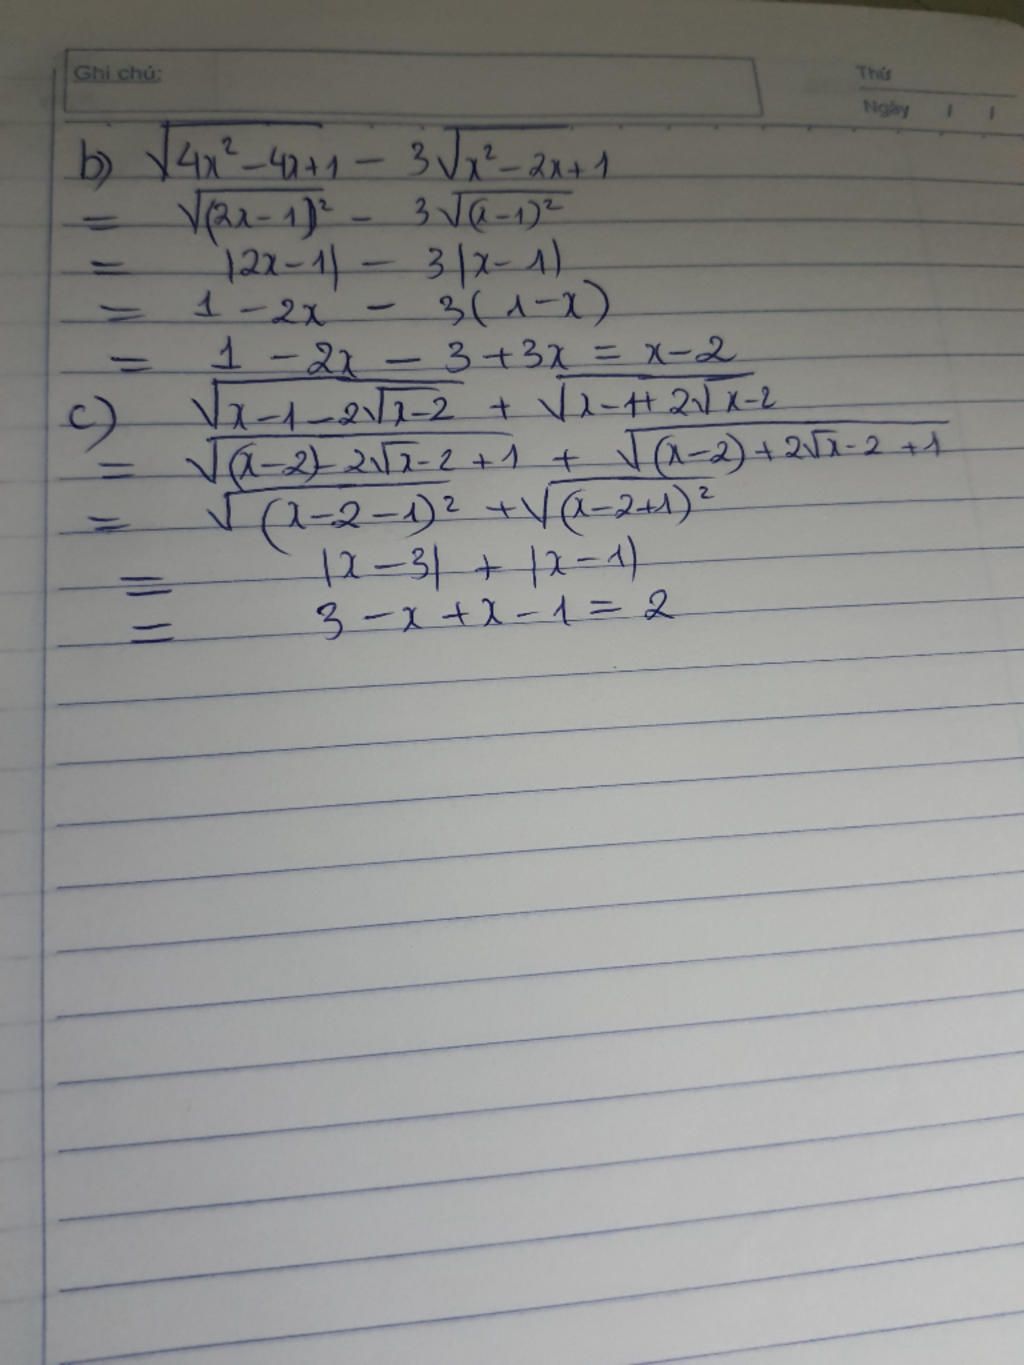 Ghi chú:
Thứ
Ngày / /
b) √(4x² - 4x + 1) - 3√(x² - 2x + 1)
= √((2x - 1)²) - 3√((x - 1)²)
= |2x - 1| - 3|x - 1|
= 1 - 2x - 3(1 - x)
= 1 - 2x - 3 + 3x = x - 2
c) √(x - 1 - 2√(x - 2)) + √(x - 1 + 2√(x - 2))
= √((x - 2) - 2√(x - 2) + 1) + √((x - 2) + 2√(x - 2) + 1)
= √((x - 2 - 1)²) + √((x - 2 + 1)²)
= |x - 3| + |x - 1|
= 3 - x + x - 1 = 2